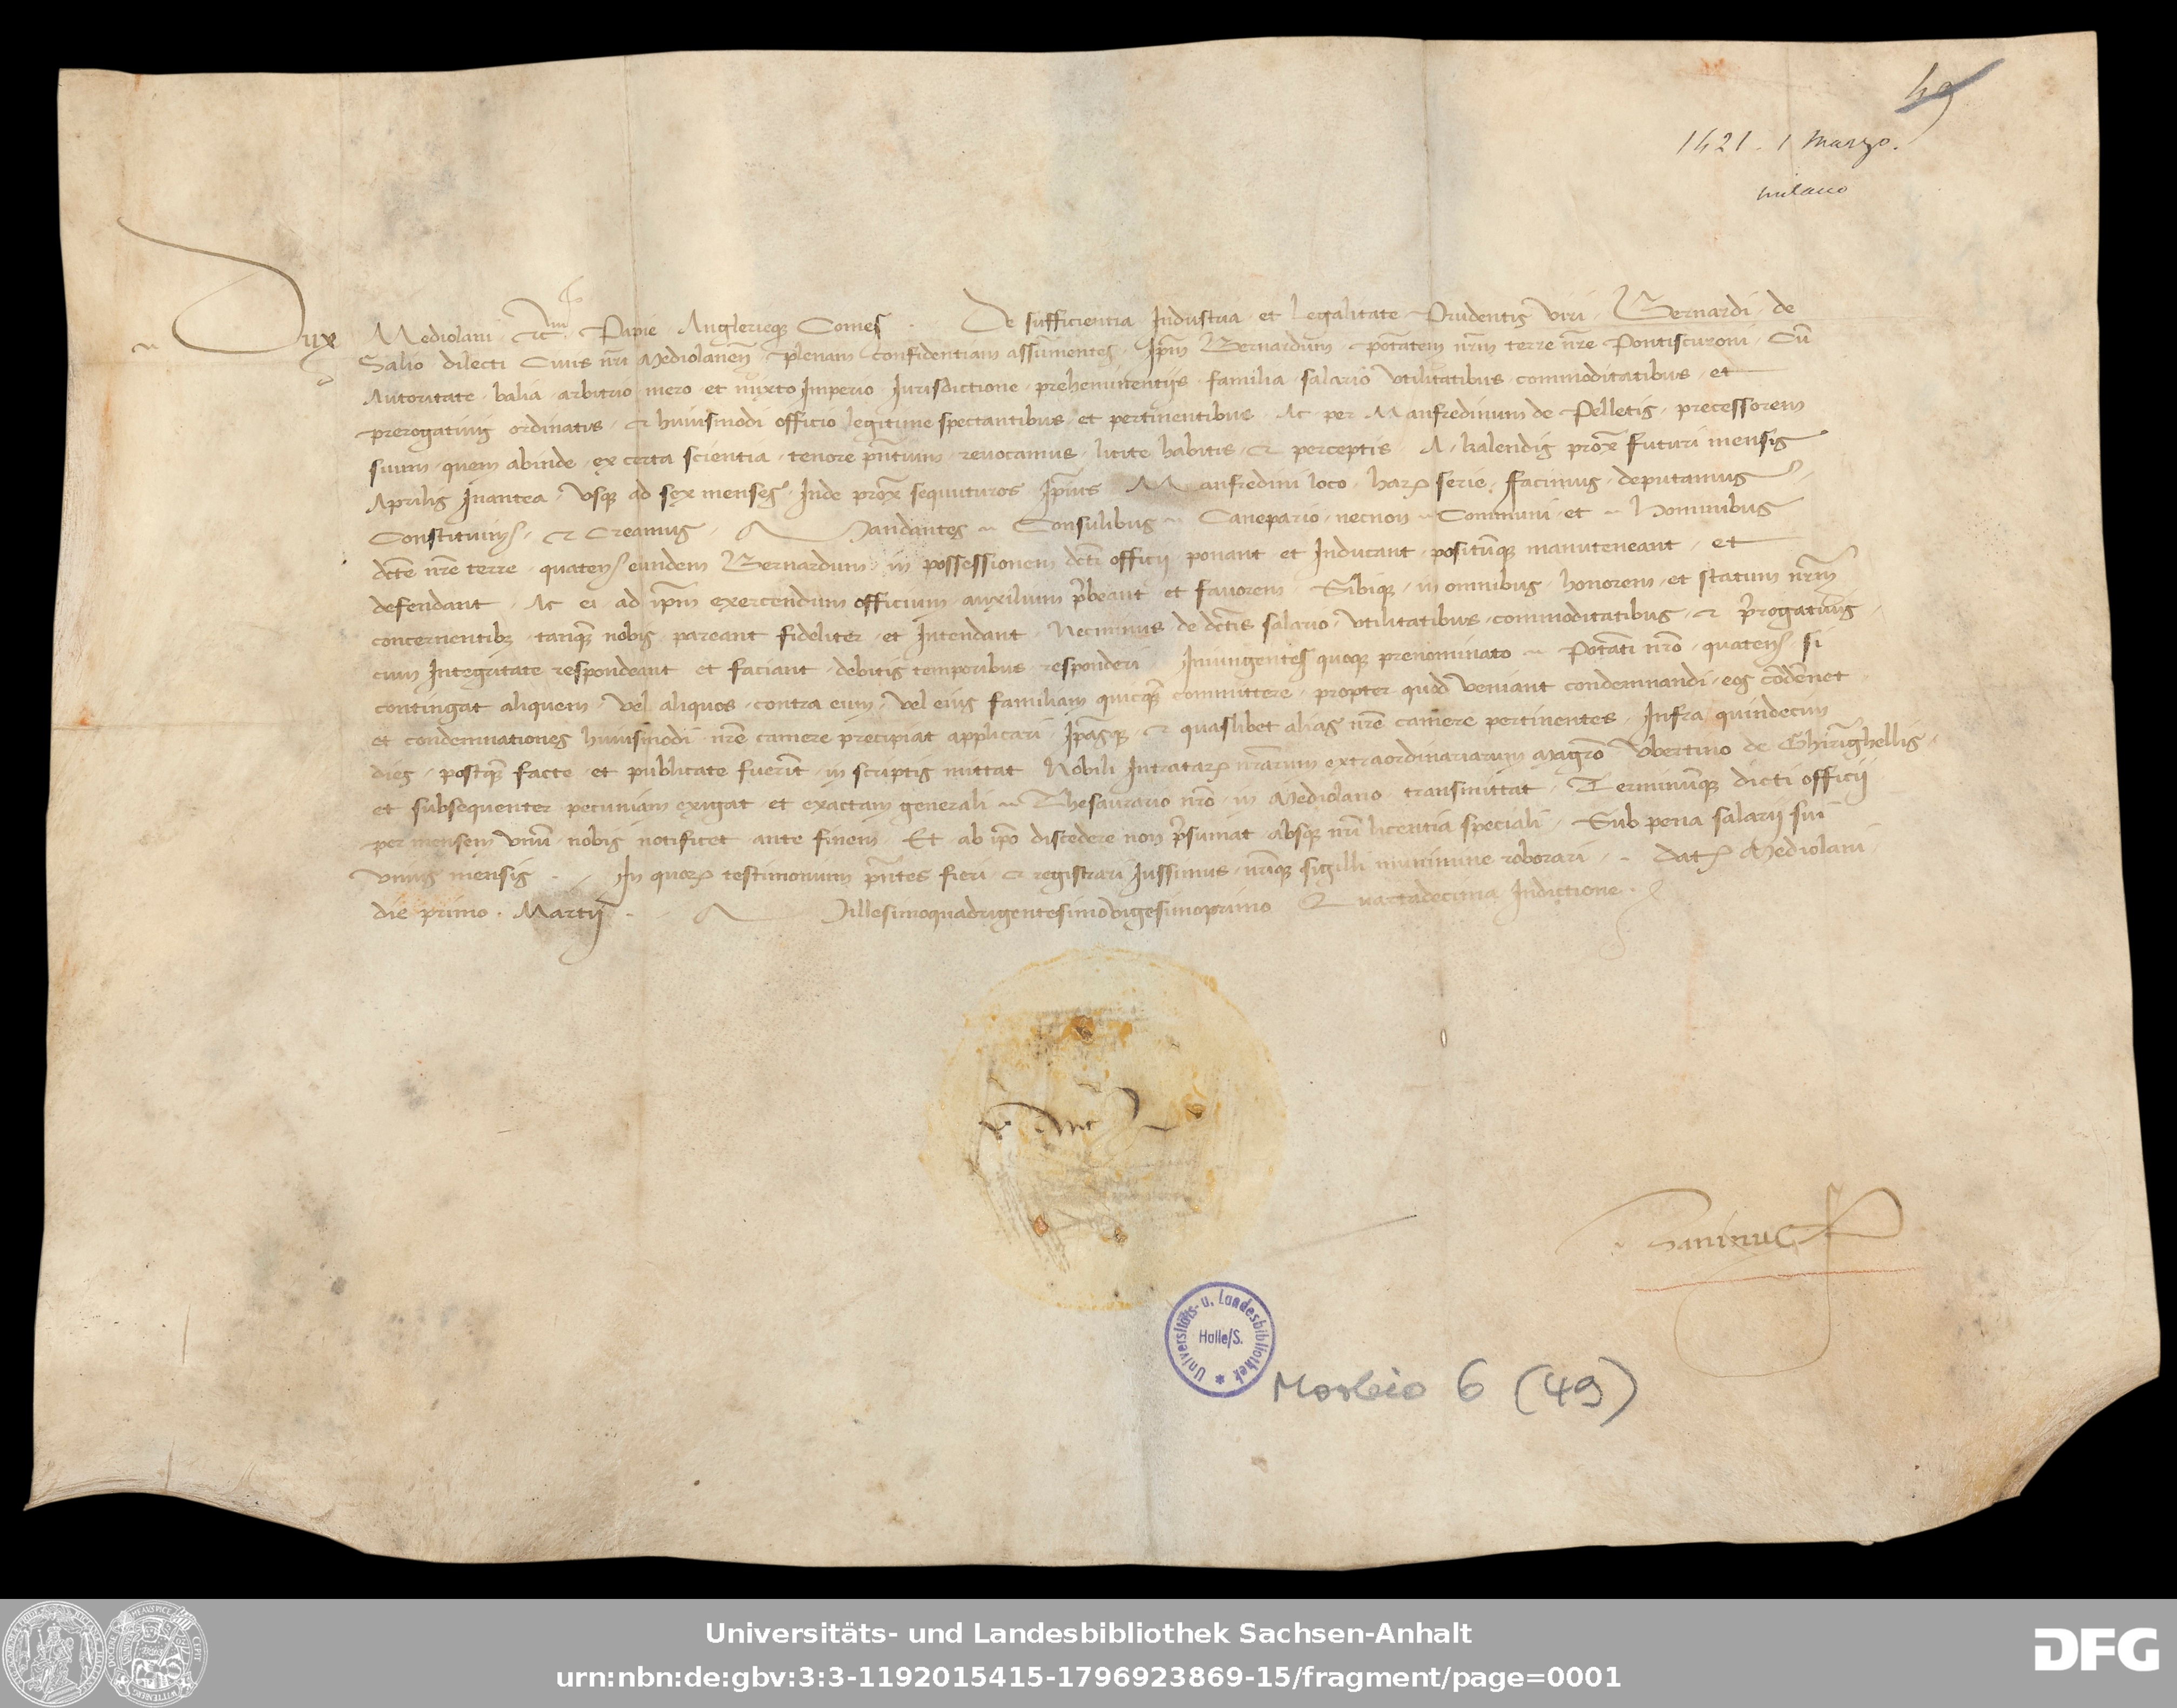 49
1421. 1 Marzo.
Milano
Dux Mediolani · etc̃. Papie Anglerieq3 Comes · De sufficientia Industria et legalitate Prudentis viri · Bernardi · de
Salio dilecti Civis nr̃i Mediolanen̄ · plenam confidentiam assumentes · Ip̃m Bernardum · potatem nr̃m terre nr̃e Pontiscuroni · Cū
Autoritate · balia · arbitrio mero · et mixto Imperio · Iurisdictione · preheminentijs · familia · salario vtilitatibus commoditatibus · et
prerogativis ordinatis · et huiusmodi officio legitime spectantibus · et pertinentibus · Ac per Manfredinum de Pelletis · precessorem
suum · quem abinde · ex certa scientia · tenore pñtium · revocamus · licite habitis · et perceptis · A · kalendis prox̃ futuri mensis
Aprilis Inantea · vsq3 ad sex menses · Inde prox̃ sequuturos Ip̃ius Manfredini loco · har̃ serie · Facimus · deputamus
Constituim9 · et Creamus · Mandantes Consulibus Canepario · necnon Communi · et hominibus
dc̃te nr̃e terre · quaten9 eundem Bernardum · in possessionem dc̃ti officij ponant et Inducant · positūq3 manuteneant · et
defendant · Ac ei ad ip̃m exercendum officium · auxilium p̃beant et favorem · Sibiq3 · in omnibus · honorem · et statum nr̃m
concernentib3 · tanq̃3 nobis pareant fideliter · et Intendant · Necminus de dc̃tis salario · vtilitatibus · commoditatibus · et p̃rogativis
cum Integritate respondeant et faciant · debitis temporibus responderi Iniungentes quoq3 prenominato Potati nr̃o · quaten9 · si
contingat aliquem · vel aliquos · contra eum · vel eius familiam quicq̃3 committere · propter quod veniant condemnandi · eos cōdēnet
et condemnationes huiusmodi nr̃e camere precipiat applicari · Ip̃asq3 · et quaslibet alias nr̃e camere pertinentes · Infra quindecim
dies · postq̃3 facte et publicate fuerīt · in scriptis mittat Nobili Intratar̃ nr̃arum extraordinariarum magr̃o Vbertino de Ghiringhellis
et subsequenter pecuniam exigat et exactam generali Thesaurario nr̃o in Mediolano transmittat · Terminūq3 dicti officij
per mensem vnū nobis notificet ante finem · Et ab ip̃o discedere non p̃sumat absq3 nr̃i licentia speciali · Sub pena salarij sui
vnius mensis · In quor̃ testimonium pñtes fieri · et registrari Iussimus · nr̃iq3 sigilli munimine roborari · Dat̃ Mediolani
die primo · Martij · Millesimoquadrigentesimovigesimoprimo Quartadecima Indictione ·
Universitäts- u. Landesbibliothek
Halle/S.
Morbio 6 (49)
Universitäts- und Landesbibliothek Sachsen-Anhalt
urn:nbn:de:gbv:3:3-1192015415-1796923869-15/fragment/page=0001
DFG